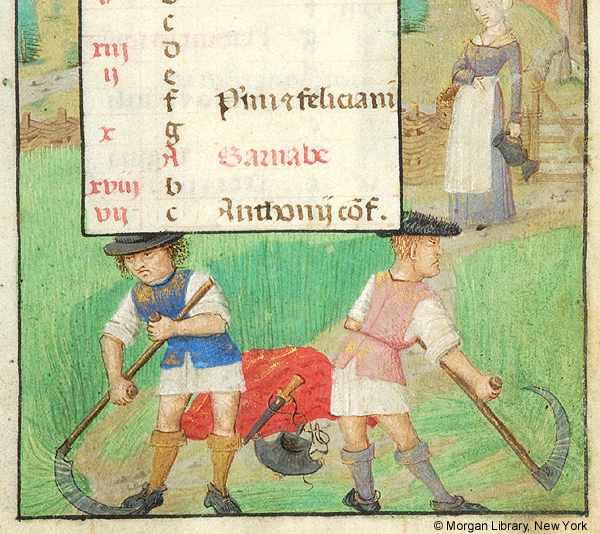 c
xiij d
ij e
f P'mi ⁊ feliciani
x g
A Barnabe
xviij b
vij c Anthonij cōf.
© Morgan Library, New York